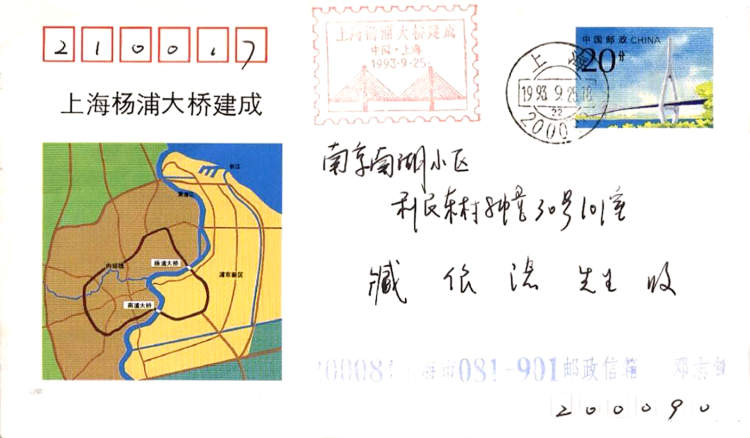 210017
上海杨浦大桥建成
上海杨浦大桥建成
中国·上海
1993-9-25
中国邮政 CHINA
20分
上海
1993.9.25.18
2000
长江
黄浦江
内环线
杨浦大桥
浦东新区
南浦大桥
南京南湖小区
利民东村 30号101室
臧 先生收
081-901邮政信箱
200090